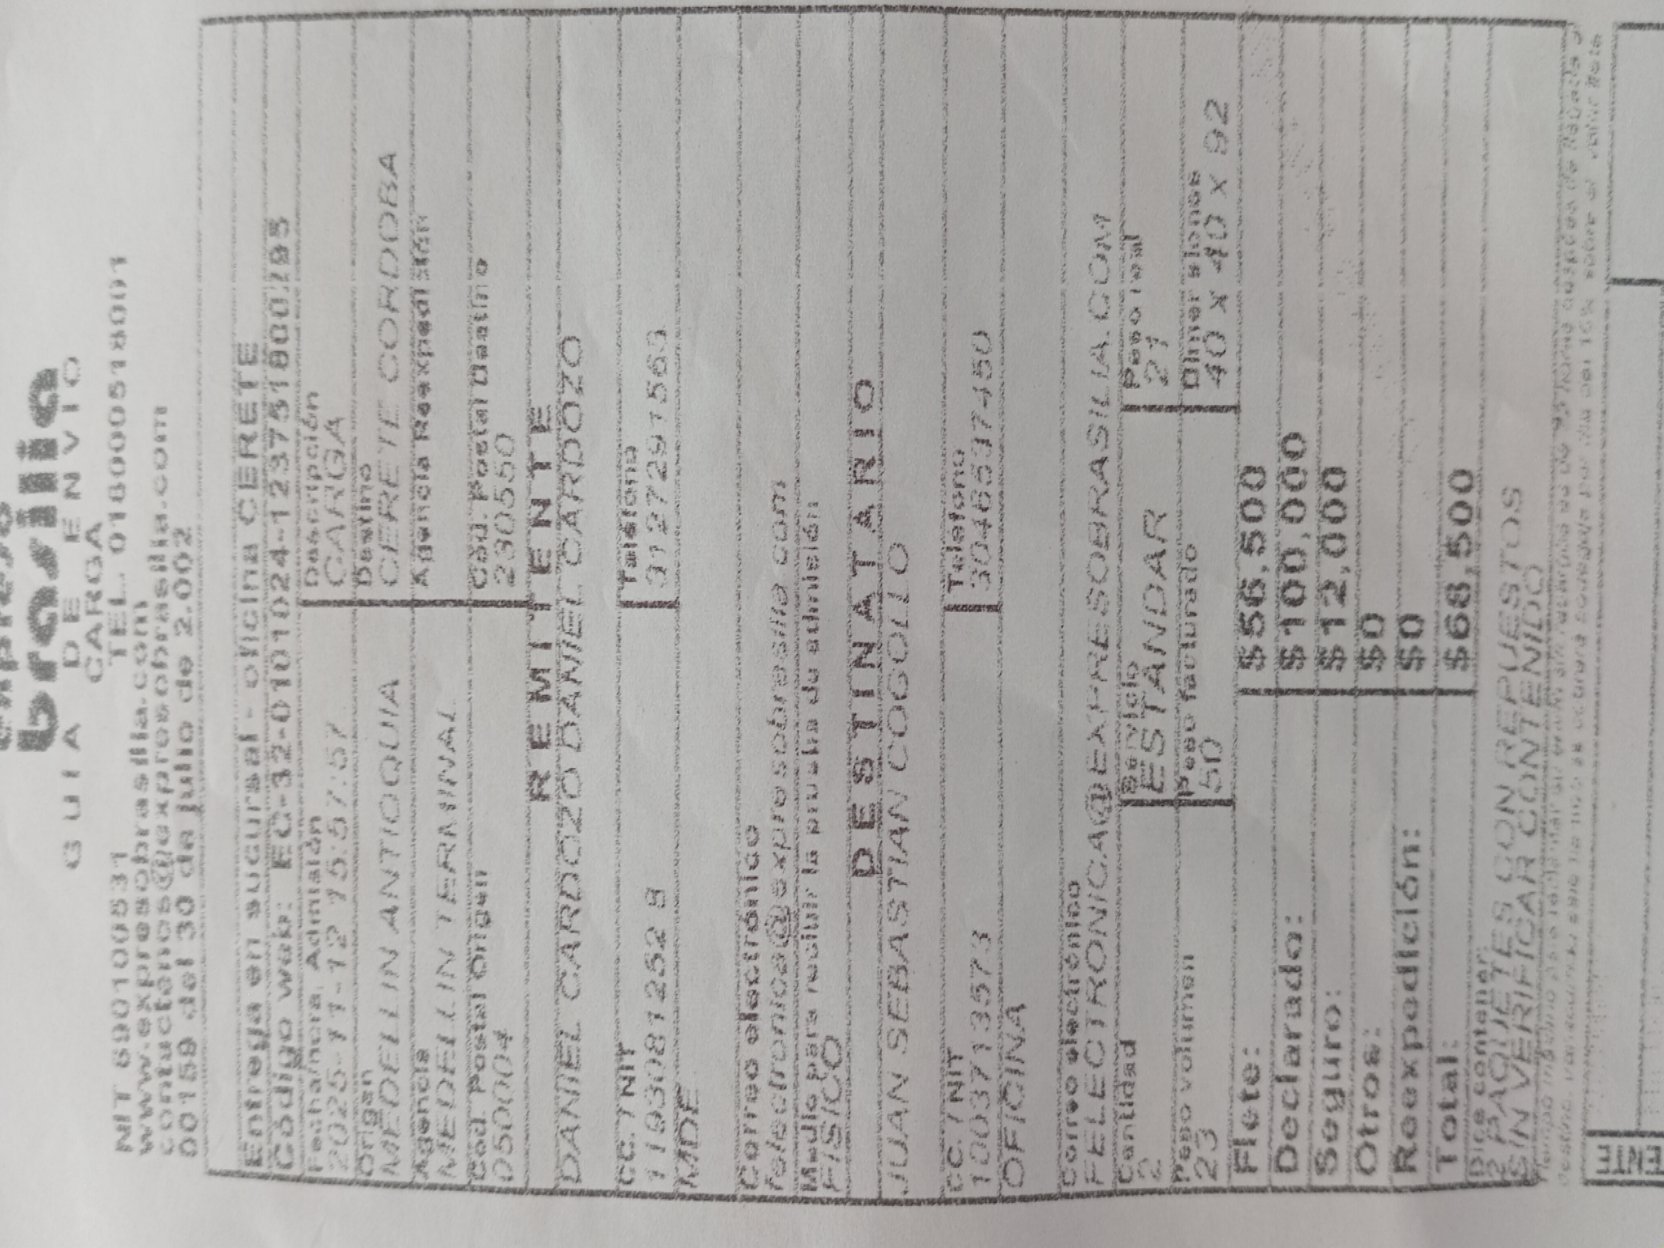 brasilia
GUIA DE ENVIO
CARGA
NIT 890100531 TEL. 018000518001
www.expresobrasilia.com
contactenos@expresobrasilia.com
00189 del 30 de julio de 2.002
Entrega en sucursal - oficina CERETE
Código web: EC-32-0101024-123751800295
Fecha/Hora Admisión Descripción
2025-11-12 15:57:57 CARGA
Origen Destino
MEDELLIN ANTIOQUIA CERETE CORDOBA
Agencia Agencia Reexpedición
MEDELLIN TERMINAL
Cod. Postal Origen Cod. Postal Destino
050004 230550
REMITENTE
DANIEL CARDOZO DANIEL CARDOZO
CC. / NIT Telefono
1193081252 9 3127291563
MDE
Correo electrónico
felectronica@expresobrasilia.com
Medio para recibir la prueba de admisión
FISICO
DESTINATARIO
JUAN SEBASTIAN COGOLLO
CC. / NIT Telefono
1003713573 3046537450
OFICINA
Correo electrónico
FELECTRONICA@EXPRESOBRASILIA.COM
Cantidad Servicio Peso real
2 ESTANDAR 21
Peso volumen Peso facturado Dimensiones
23 50 40 X 40 X 92
Flete: $56,500
Declarado: $100,000
Seguro: $12,000
Otros: $0
Reexpedición: $0
Total: $68,500
Dice contener:
2 PAQUETES CON REPUESTOS
SIN VERIFICAR CONTENIDO